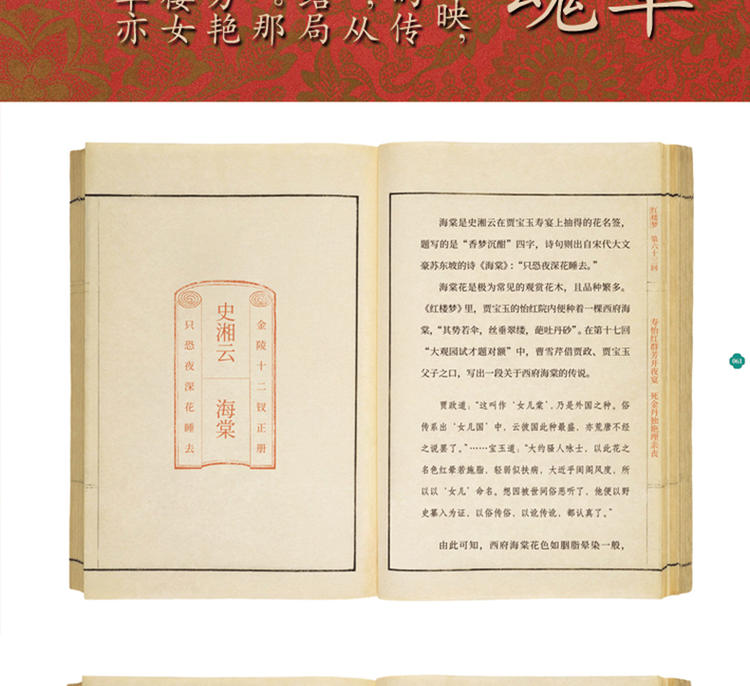 魂
映，
传
，从
局
。那
艳
楼女
亦
金陵十二钗正册
史湘云 海棠
只恐夜深花睡去
红楼梦 第六十三回
寿怡红群芳开夜宴 死金丹独艳理亲丧
海棠是史湘云在贾宝玉寿宴上抽得的花名签，
题写的是“香梦沉酣”四字，诗句则出自宋代大文
豪苏东坡的诗《海棠》：“只恐夜深花睡去。”
海棠花是极为常见的观赏花木，且品种繁多。
《红楼梦》里，贾宝玉的怡红院内便种着一棵西府海
棠，“其势若伞，丝垂翠缕，葩吐丹砂”。在第十七回
“大观园试才题对额”中，曹雪芹借贾政、贾宝玉
父子之口，写出一段关于西府海棠的传说。
贾政道：“这叫作‘女儿棠’，乃是外国之种。俗
传系出‘女儿国’中，云彼国此种最盛，亦荒唐不经
之说罢了。”……宝玉道：“大约骚人咏士，以此花之
名色红晕若施脂，轻弱似扶病，大近乎闺阁风度，所
以以‘女儿’命名。想因被世间俗恶听了，他便以野
史纂入为证，以俗传俗，以讹传讹，都认真了。”
由此可知，西府海棠花色如胭脂晕染一般，
061